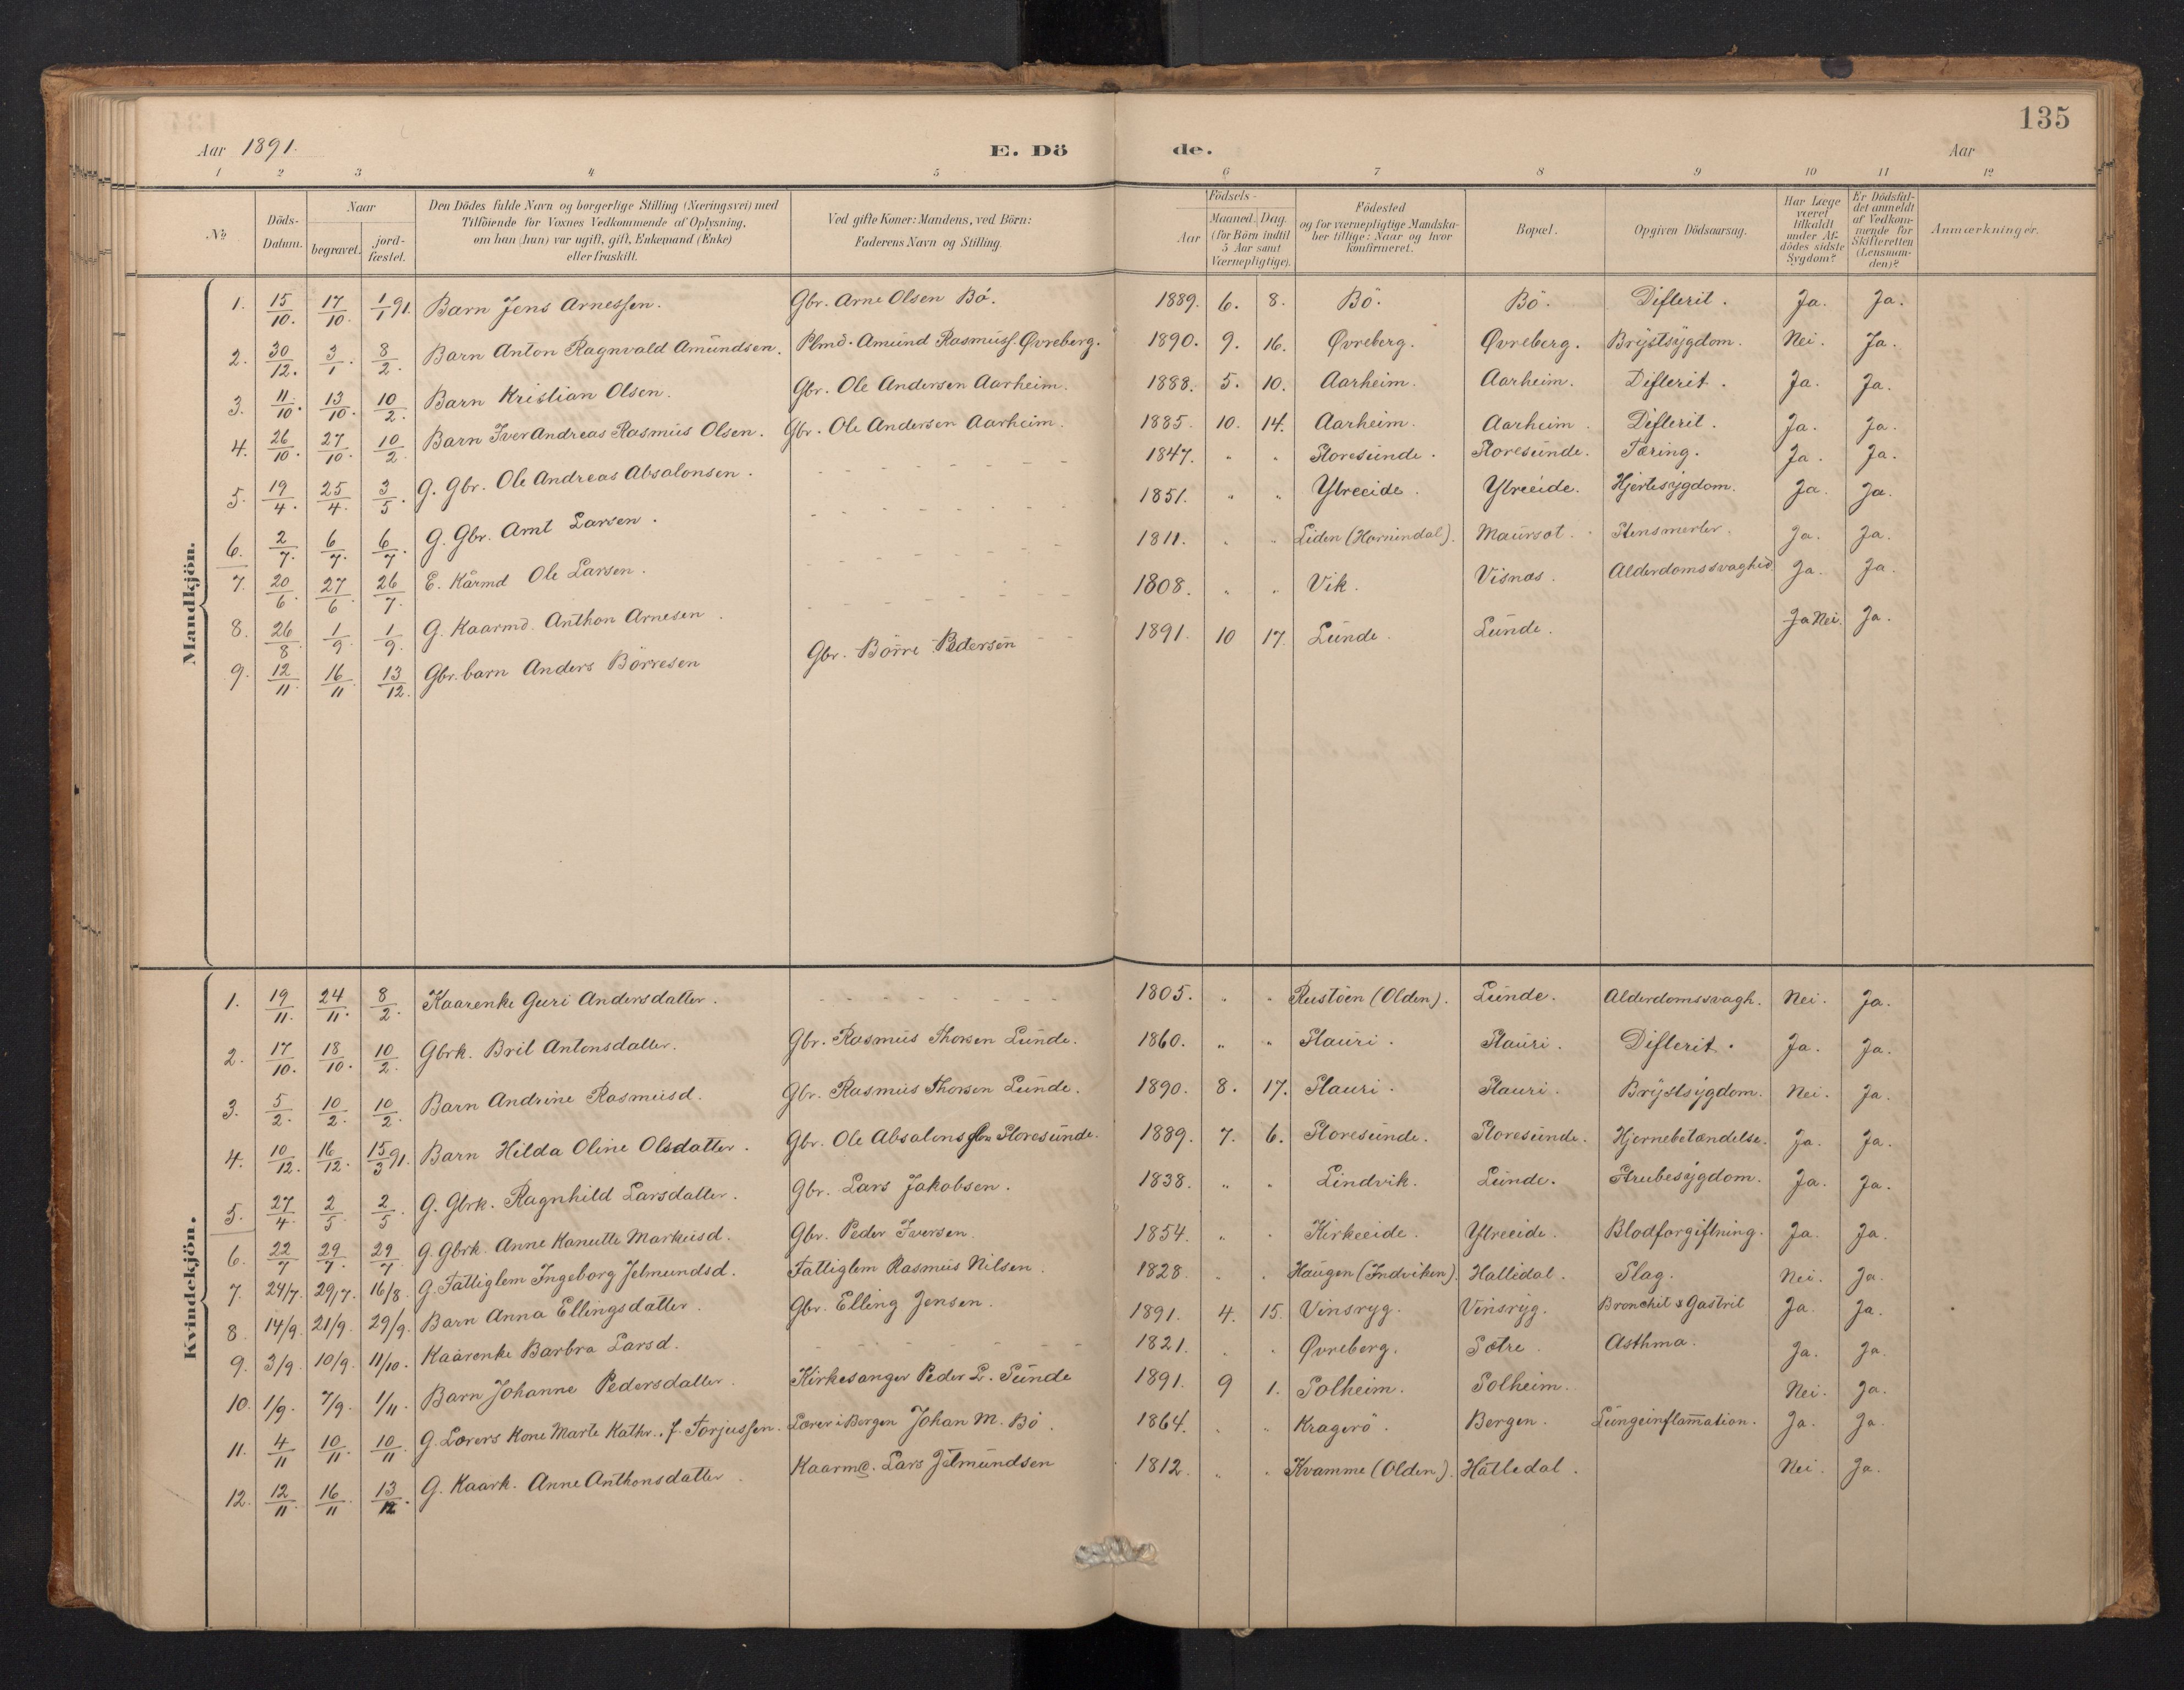 135
Aar 1891. E. Dö de. Aar
1 2 3 4 5 6 7 8 9 10 11 12
No Döds-Datum. Naar begravet. jord-fæstet. Den Dödes fulde Navn og borgerlige Stilling (Næringsvei) med Tilföiende for Voxnes Vedkommende af Oplysning, om han (hun) var ugift, gift, Enkemand (Enke) eller fraskilt. Ved gifte Koner: Mandens, ved Börn: Faderens Navn og Stilling. Födsels- Aar Maaned. Dag. (for Börn indtil 5 Aar samt Værnepligtige). Födested og for værnepligtige Mandska-ber tillige: Naar og hvor konfirmeret. Bopæl. Opgiven Dödsaarsag. Har Læge været tilkaldt under Af-dödes sidste Sygdom? Er Dödsfal-det anmeldt af Vedkom-mende for Skifteretten (Lensman-den)? Anmærkninger.
Mandkjön.
1. 15/10. 17/10. 1/1 91. Barn Jens Arnessen. Gbr. Arne Olsen Bö. 1889. 6. 8. Bö. Bö. Difterit. Ja. Ja.
2. 30/12. 3/1. 8/2. Barn Anton Ragnvald Amundsen. Plmd. Amund Rasmuss. Øvreberg. 1890. 9. 16. Øvreberg. Øvreberg. Brystsygdom. Nei. Ja.
3. 11/10. 13/10. 10/2. Barn Kristian Olsen. Gbr. Ole Andersen Aarheim. 1888. 5. 10. Aarheim. Aarheim. Difterit. Ja. Ja.
4. 26/10. 27/10. 10/2. Barn Iver Andreas Rasmus Olsen. Gbr. Ole Andersen Aarheim. 1885. 10. 14. Aarheim. Aarheim. Difterit. Ja. Ja.
5. 19/4. 25/4. 3/5. G. Gbr. Ole Andreas Absalonsen. - - - - - - - - 1847. " " Storesunde. Storesunde. Tæring. Ja. Ja.
6. 2/7. 6/7. 6/7. G. Gbr. Arnt Larsen. - - - - - - - - 1851. " " Ytreeide. Ytreeide. Hjertesygdom. Ja. Ja.
7. 20/6. 27/6. 26/7. E. Kårmd Ole Larsen. - - - - - - - 1811. " " Liden (Hornindal). Maursot. Stensmerter. Ja. Ja.
8. 26/8. 1/9. 1/9. G. Kaarmd. Anthon Arnesen. - - - - - - - - 1808. " " Vik. Visnæs. Alderdomssvaghed Ja. Ja.
9. 12/11. 16/11. 13/12. Gbr. barn Anders Börresen Gbr. Börre Pedersen 1891. 10 17. Lunde. Lunde. Ja Nei. Ja.
Kvindekjön.
1. 19/11. 24/11. 8/2. Kaarenke Guri Andersdatter. - - - - - - - - 1805. " " Rustöen (Olden). Lunde. Alderdomssvagh. Nei. Ja.
2. 17/10. 18/10. 10/2. Gbrk. Brit Antonsdatter. Gbr. Rasmus Thorsen Lunde. 1860. " " Flauri. Flauri. Difterit. Ja. Ja.
3. 5/2. 10/2. 10/2. Barn Andrine Rasmusd. Gbr. Rasmus Thorsen Lunde. 1890. 8. 17. Flauri. Flauri. Brystsygdom. Nei. Ja.
4. 10/12. 16/12. 15/3 91. Barn Hilda Oline Olsdatter. Gbr. Ole Absalons Storesunde. 1889. 7. 6. Storesunde. Storesunde. Hjernebetændelse. Ja. Ja.
5. 27/4. 2/5. 2/5. G. Gbrk. Ragnhild Larsdatter. Gbr. Lars Jakobsen. 1838. " " Lindvik. Lunde. Strubesygdom. Ja. Ja.
6. 22/7 29/7. 29/7. G. Gbrk. Anne Kanutte Markusd. Gbr. Peder Iversen 1854. " " Kirkeeide. Ytreeide. Blodforgiftning. Ja. Ja.
7. 24/7. 29/7. 16/8. G. Fattiglem Ingeborg Jetmundsd. Fattiglem Rasmus Nilsen. 1828. " " Haugen (Indviken). Hallidal. Slag. Nei. Ja.
8 14/9. 21/9. 29/9. Barn Anna Ellingsdatter. Gbr. Elling Jensen. 1891. 4. 15. Vinsryg. Vinsryg. Bronchit & Gastrit Ja. Ja.
9. 3/9. 10/9. 11/10. Kaarenke Barbra Larsd. - - - - - - - 1821. " " Øvreberg. Sætre. Asthma. Ja. Ja.
10. 1/9. 7/9. 1/11. Barn Johanne Pedersdatter. Kirkesanger Peder L. Sunde 1891. 9 1. Solheim. Solheim. Nei. Ja.
11. 4/11 10/11. 10/11. G. Lærers Kone Marte Kathr. f. Torjussen. Lærer i Bergen Johan M. Bö. 1864. " " Kragerö. Bergen. Lungeinflammation. Ja. Ja.
12. 12/11 16/11 13/12. G. Kaark. Anne Anthonsdatter. Kaarmd. Lars Jetmundsen 1812. " " Kvamme (Olden). Hålledal. Nei. Ja.